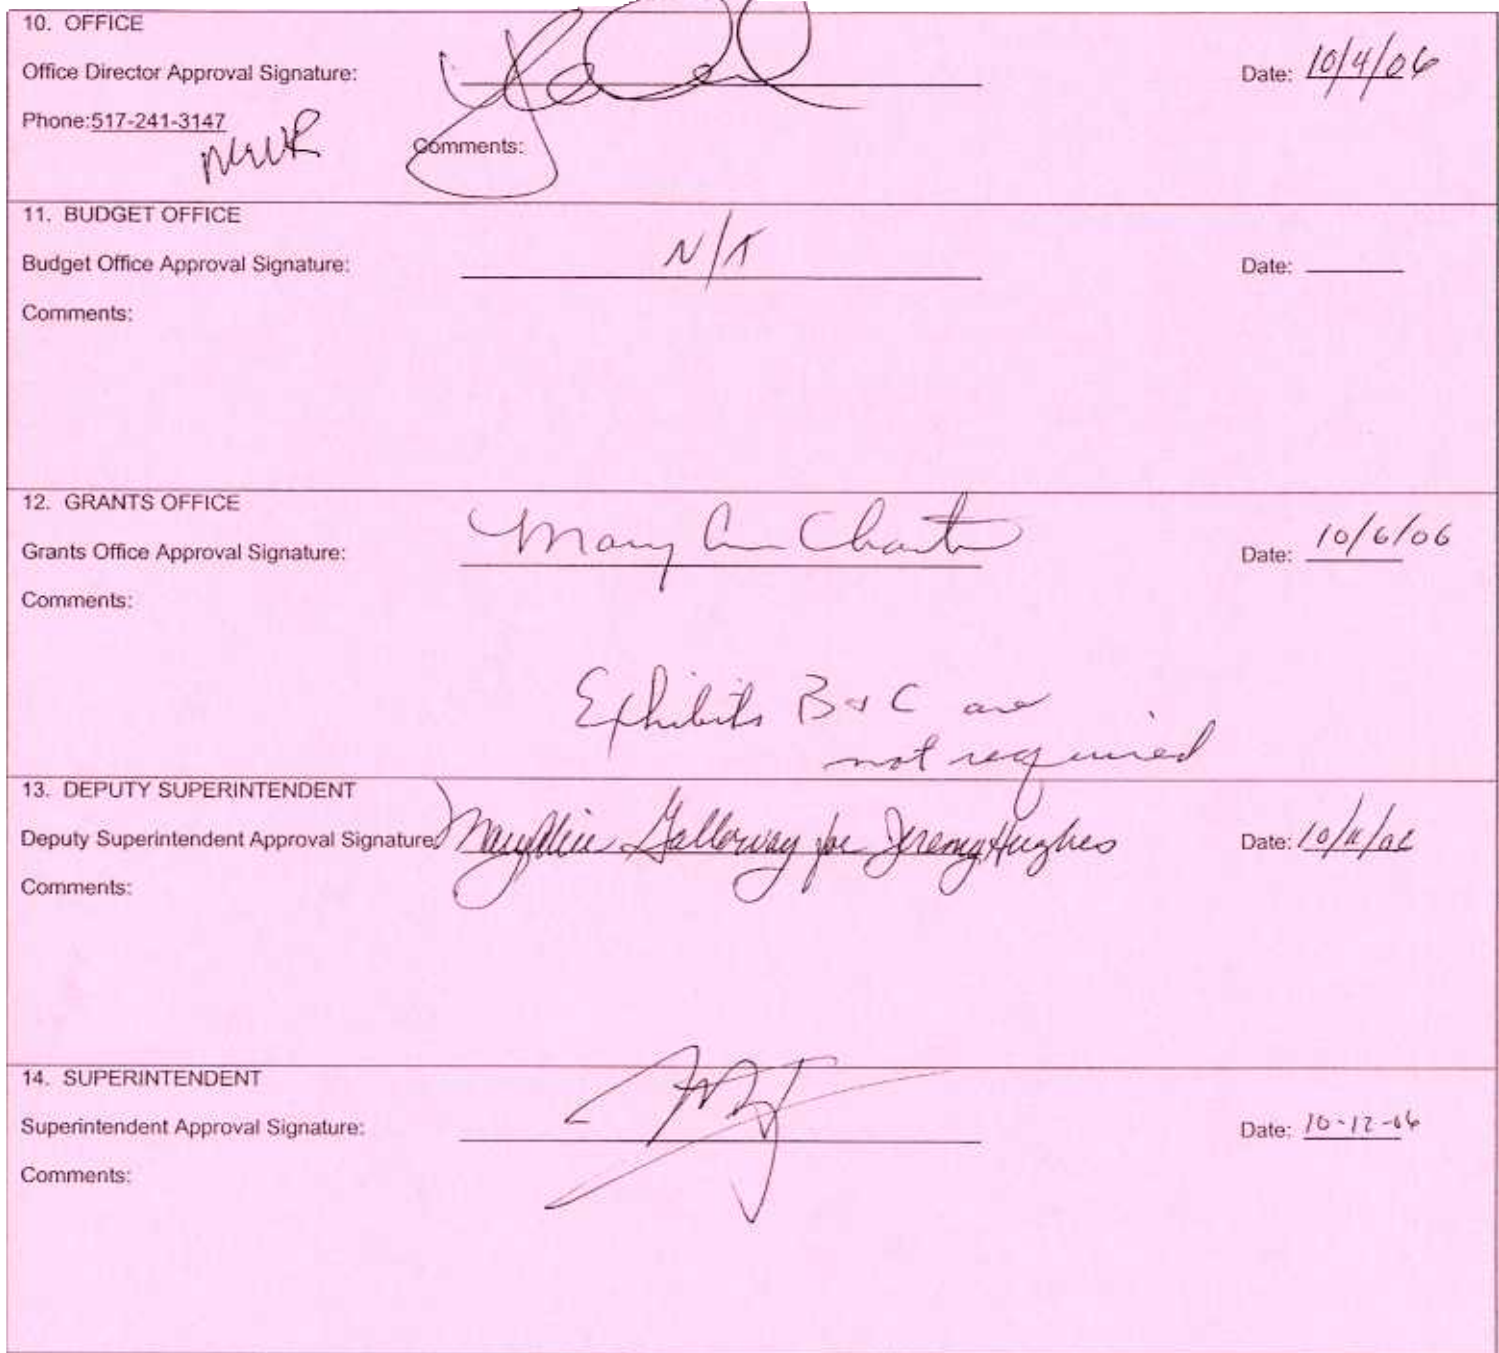 10. OFFICE
Office Director Approval Signature:
Date: 10/4/06
Phone:517-241-3147
Comments:
11. BUDGET OFFICE
Budget Office Approval Signature: N/A
Date:
Comments:
12. GRANTS OFFICE
Grants Office Approval Signature: Mary Ann Chartrand
Date: 10/6/06
Comments:
Exhibits B & C are
not required
13. DEPUTY SUPERINTENDENT
Deputy Superintendent Approval Signature: MaryAlice Galloway for Jeremy Hughes
Date: 10/11/06
Comments:
14. SUPERINTENDENT
Superintendent Approval Signature:
Date: 10-12-06
Comments: